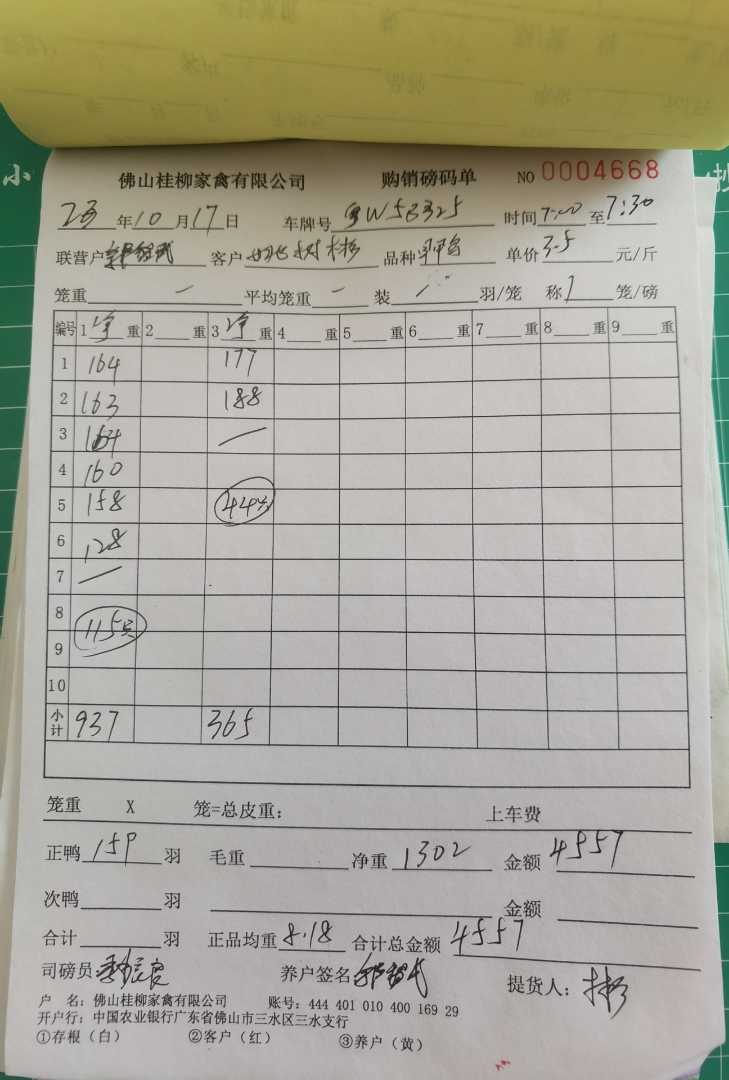 佛山桂柳家禽有限公司 购销磅码单 NO 0004668
23 年 10 月 17 日 车牌号 粤W5B325 时间 7:00 至 7:30
联营户 客户 树彬 品种 单价 3.5 元/斤
笼重 一 平均笼重 一 装 / 羽/笼 称 1 笼/磅
编号 1 净 重 2 重 3 净 重 4 重 5 重 6 重 7 重 8 重 9 重
1 164 177
2 163 188
3 164 一
4 160
5 158 44只
6 128
7 一
8 115只
9
10
小计 937 365
笼重 X 笼=总皮重: 上车费
正鸭 159 羽 毛重 净重 1302 金额 4557
次鸭 羽 金额
合计 羽 正品均重 8.18 合计总金额 4557
司磅员: 养户签名 提货人: 彬
户 名: 佛山桂柳家禽有限公司 账号: 444 401 010 400 169 29
开户行: 中国农业银行广东省佛山市三水区三水支行
①存根（白） ②客户（红） ③养户（黄）